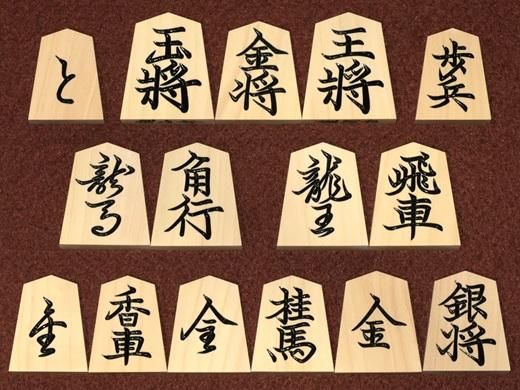 と 玉将 金将 王将 歩兵
龍馬 角行 龍王 飛車
全 香車 全 桂馬 金 銀将